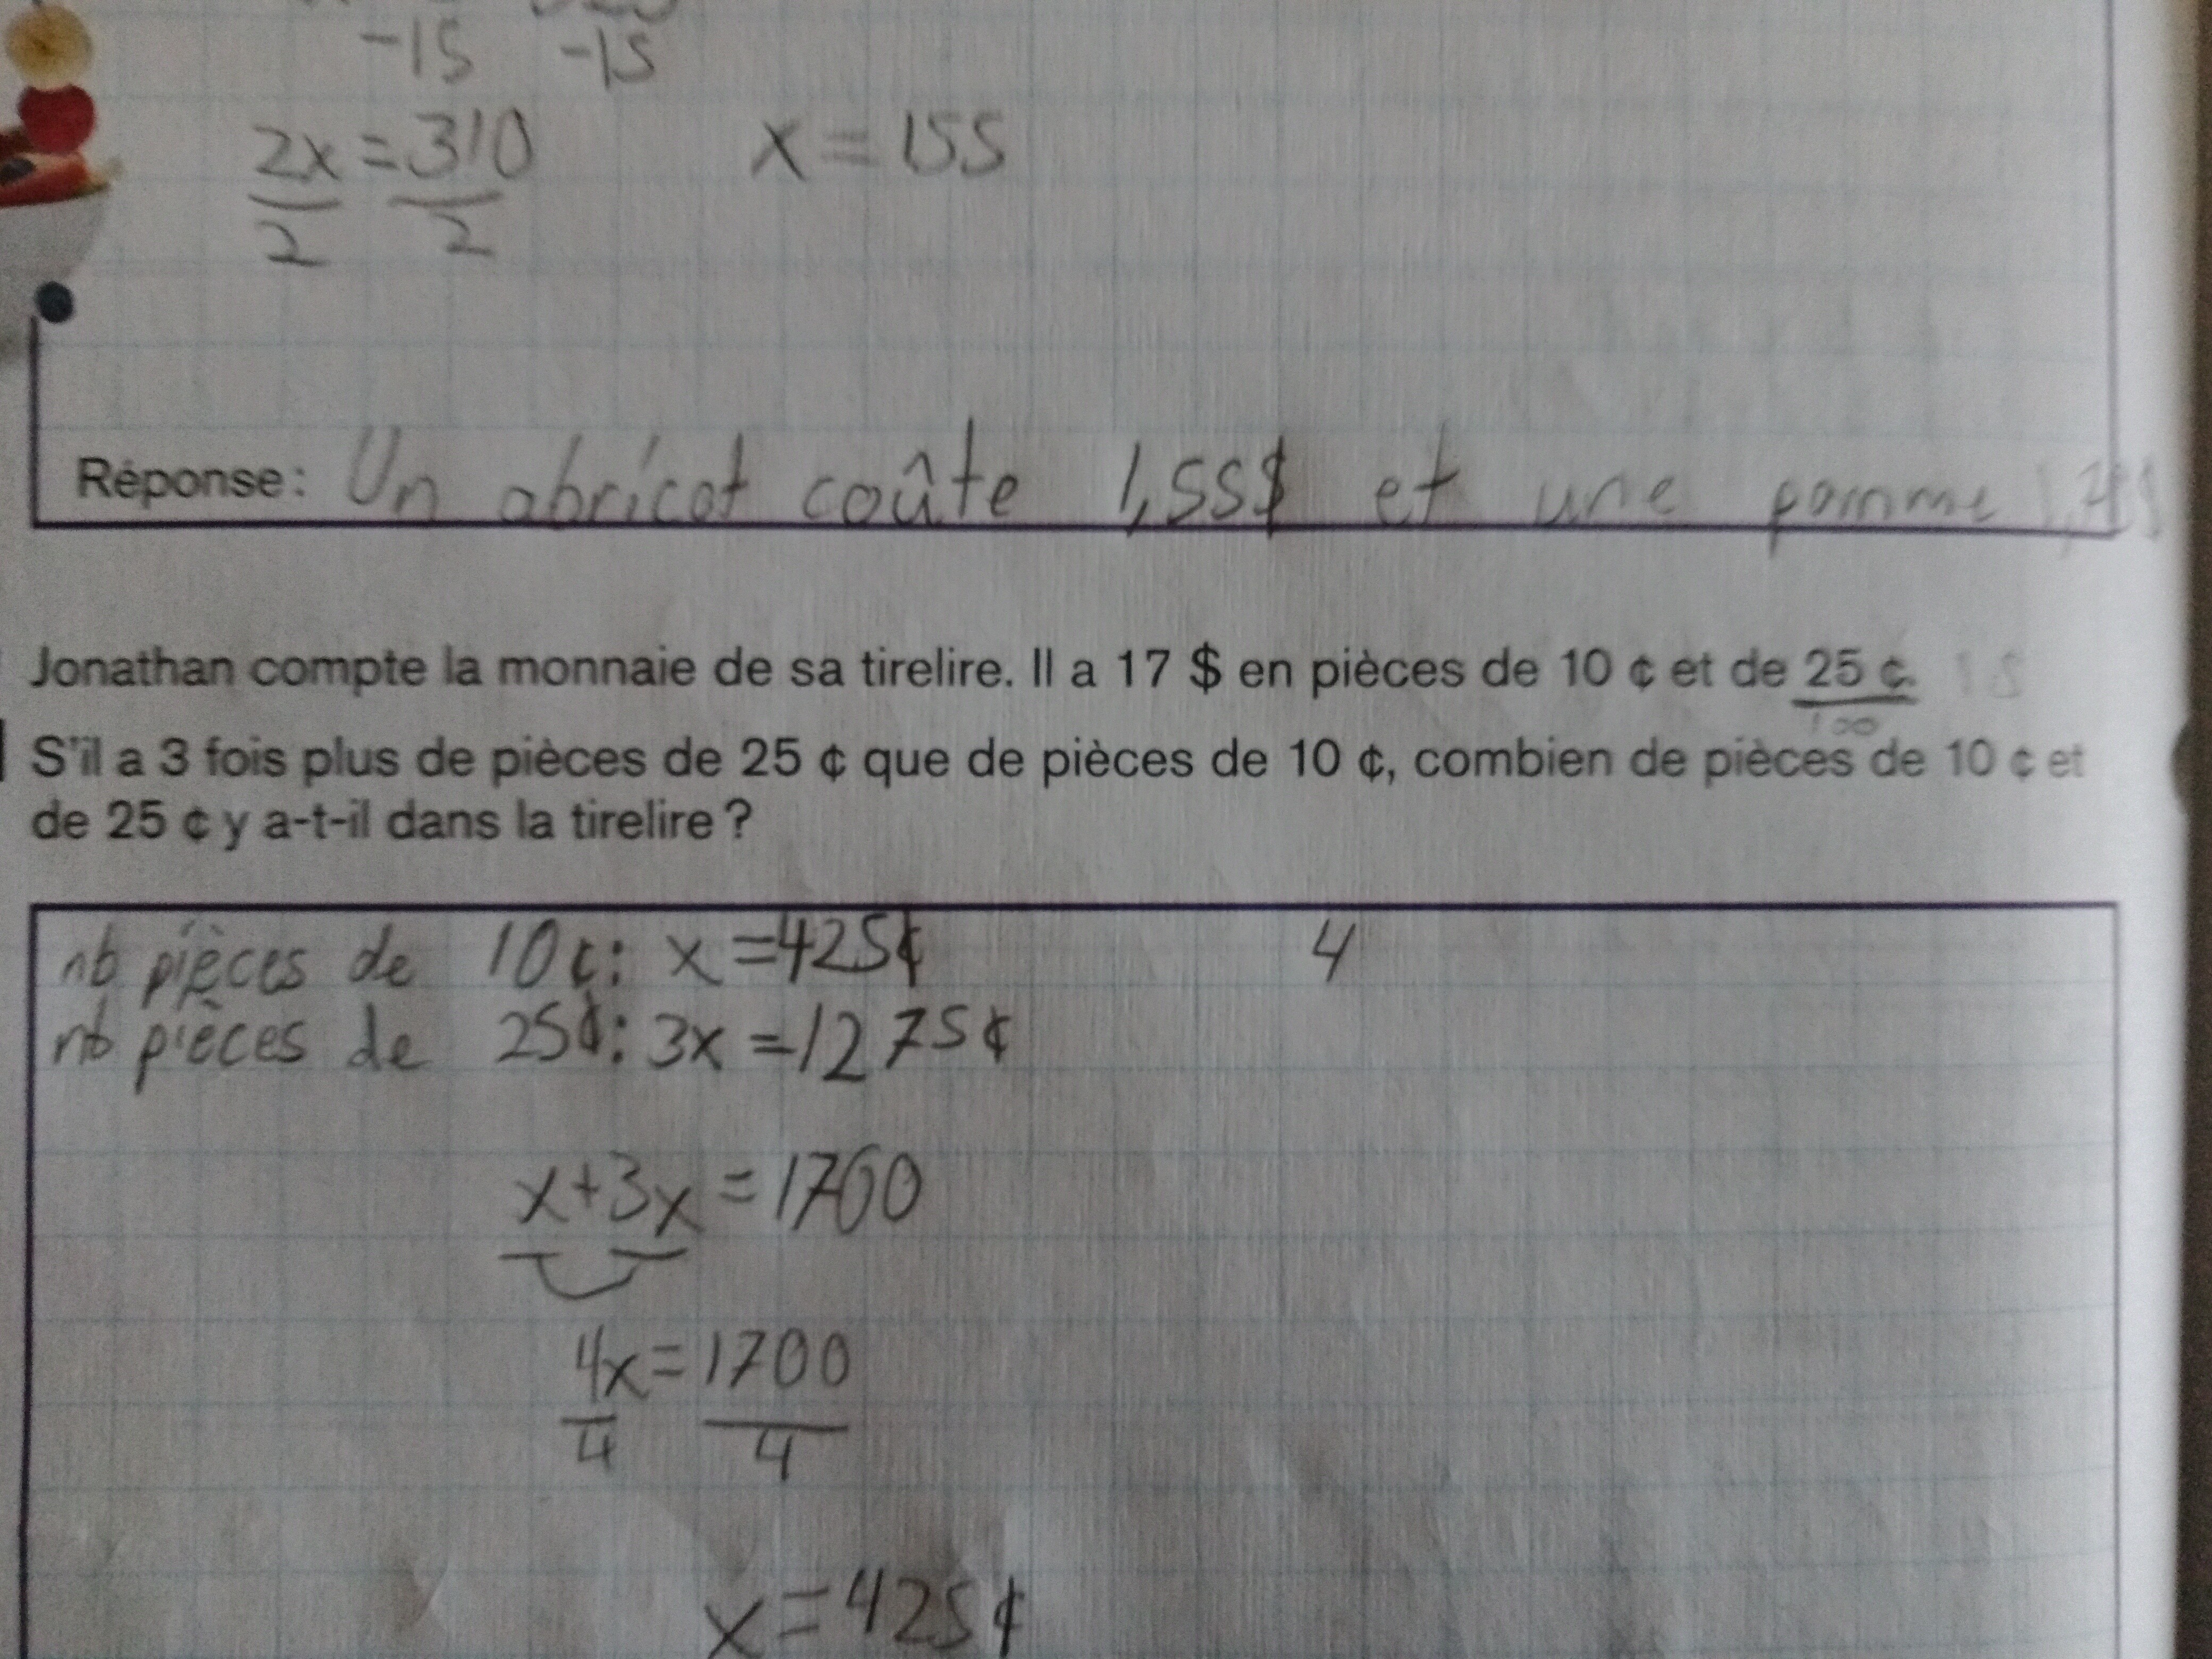 -15 -15
2x = 310 x = 155
2 2
Réponse : Un abricot coûte 1,55$ et une pomme
Jonathan compte la monnaie de sa tirelire. Il a 17 $ en pièces de 10 ¢ et de 25 ¢.
100
S'il a 3 fois plus de pièces de 25 ¢ que de pièces de 10 ¢, combien de pièces de 10 ¢ et
de 25 ¢ y a-t-il dans la tirelire ?
nb pièces de 10 ¢: x = 425¢ 4
nb pièces de 25¢: 3x = 1275¢
x+3x = 1700
4x = 1700
4 4
x = 425¢